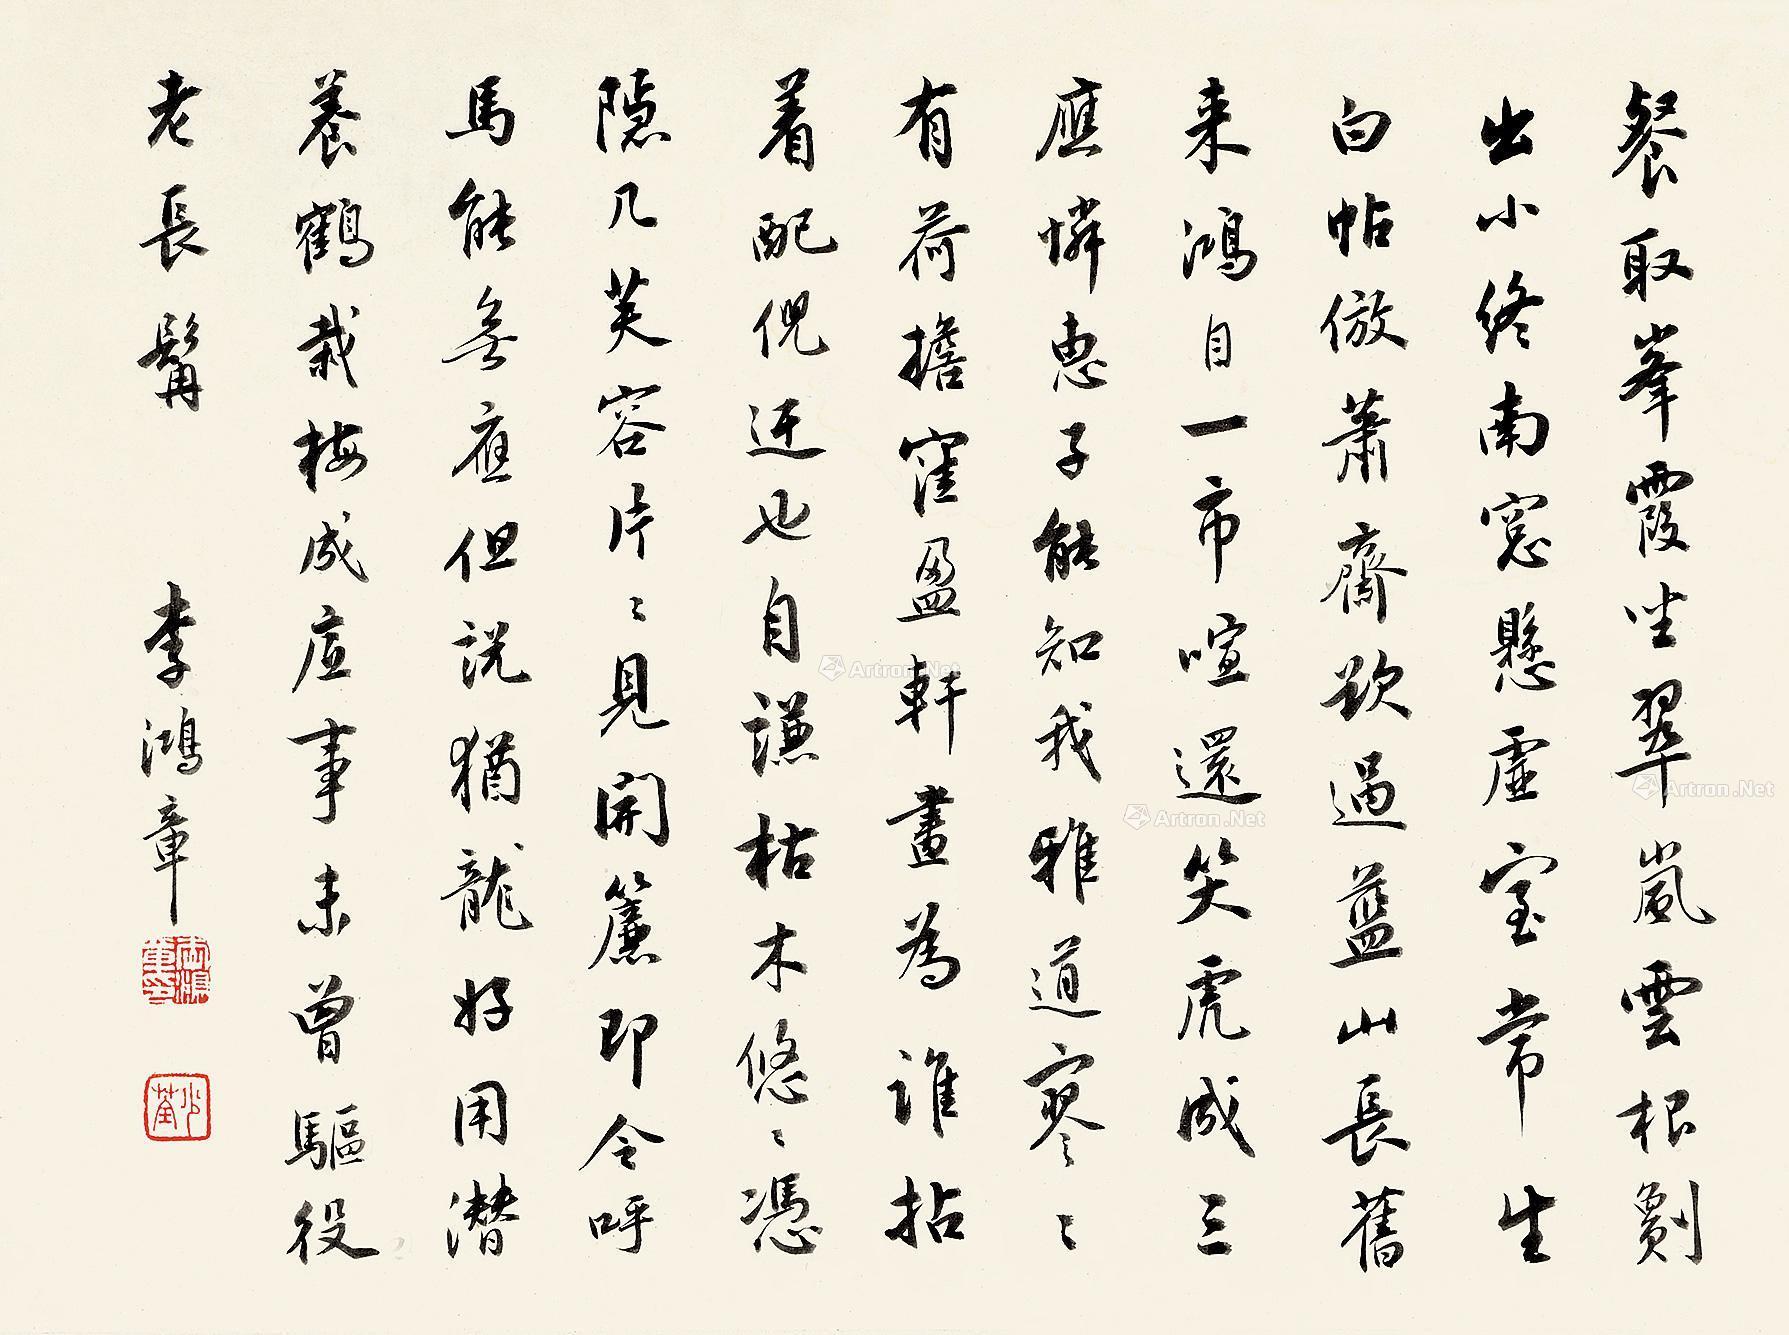 餐取峯霞坐翠嵐雲根劚
出小終南窓懸虛室常生
白帖倣蕭齋欵過藍山長舊
来鴻自一市喧還笑虎成三
應憐惠子能知我雅道寥〻
有荷擔窪盈軒畫為誰拈
着配倪迂也自謙枯木悠〻憑
隱几芙容片〻見開簾即今呼
馬能無應但説猶龍好用潜
養鶴栽梅成虛事未曾驅役
老長髯 李鴻章
李鴻章印
少荃
Artron.Net
Artron.Net
Artron.Net